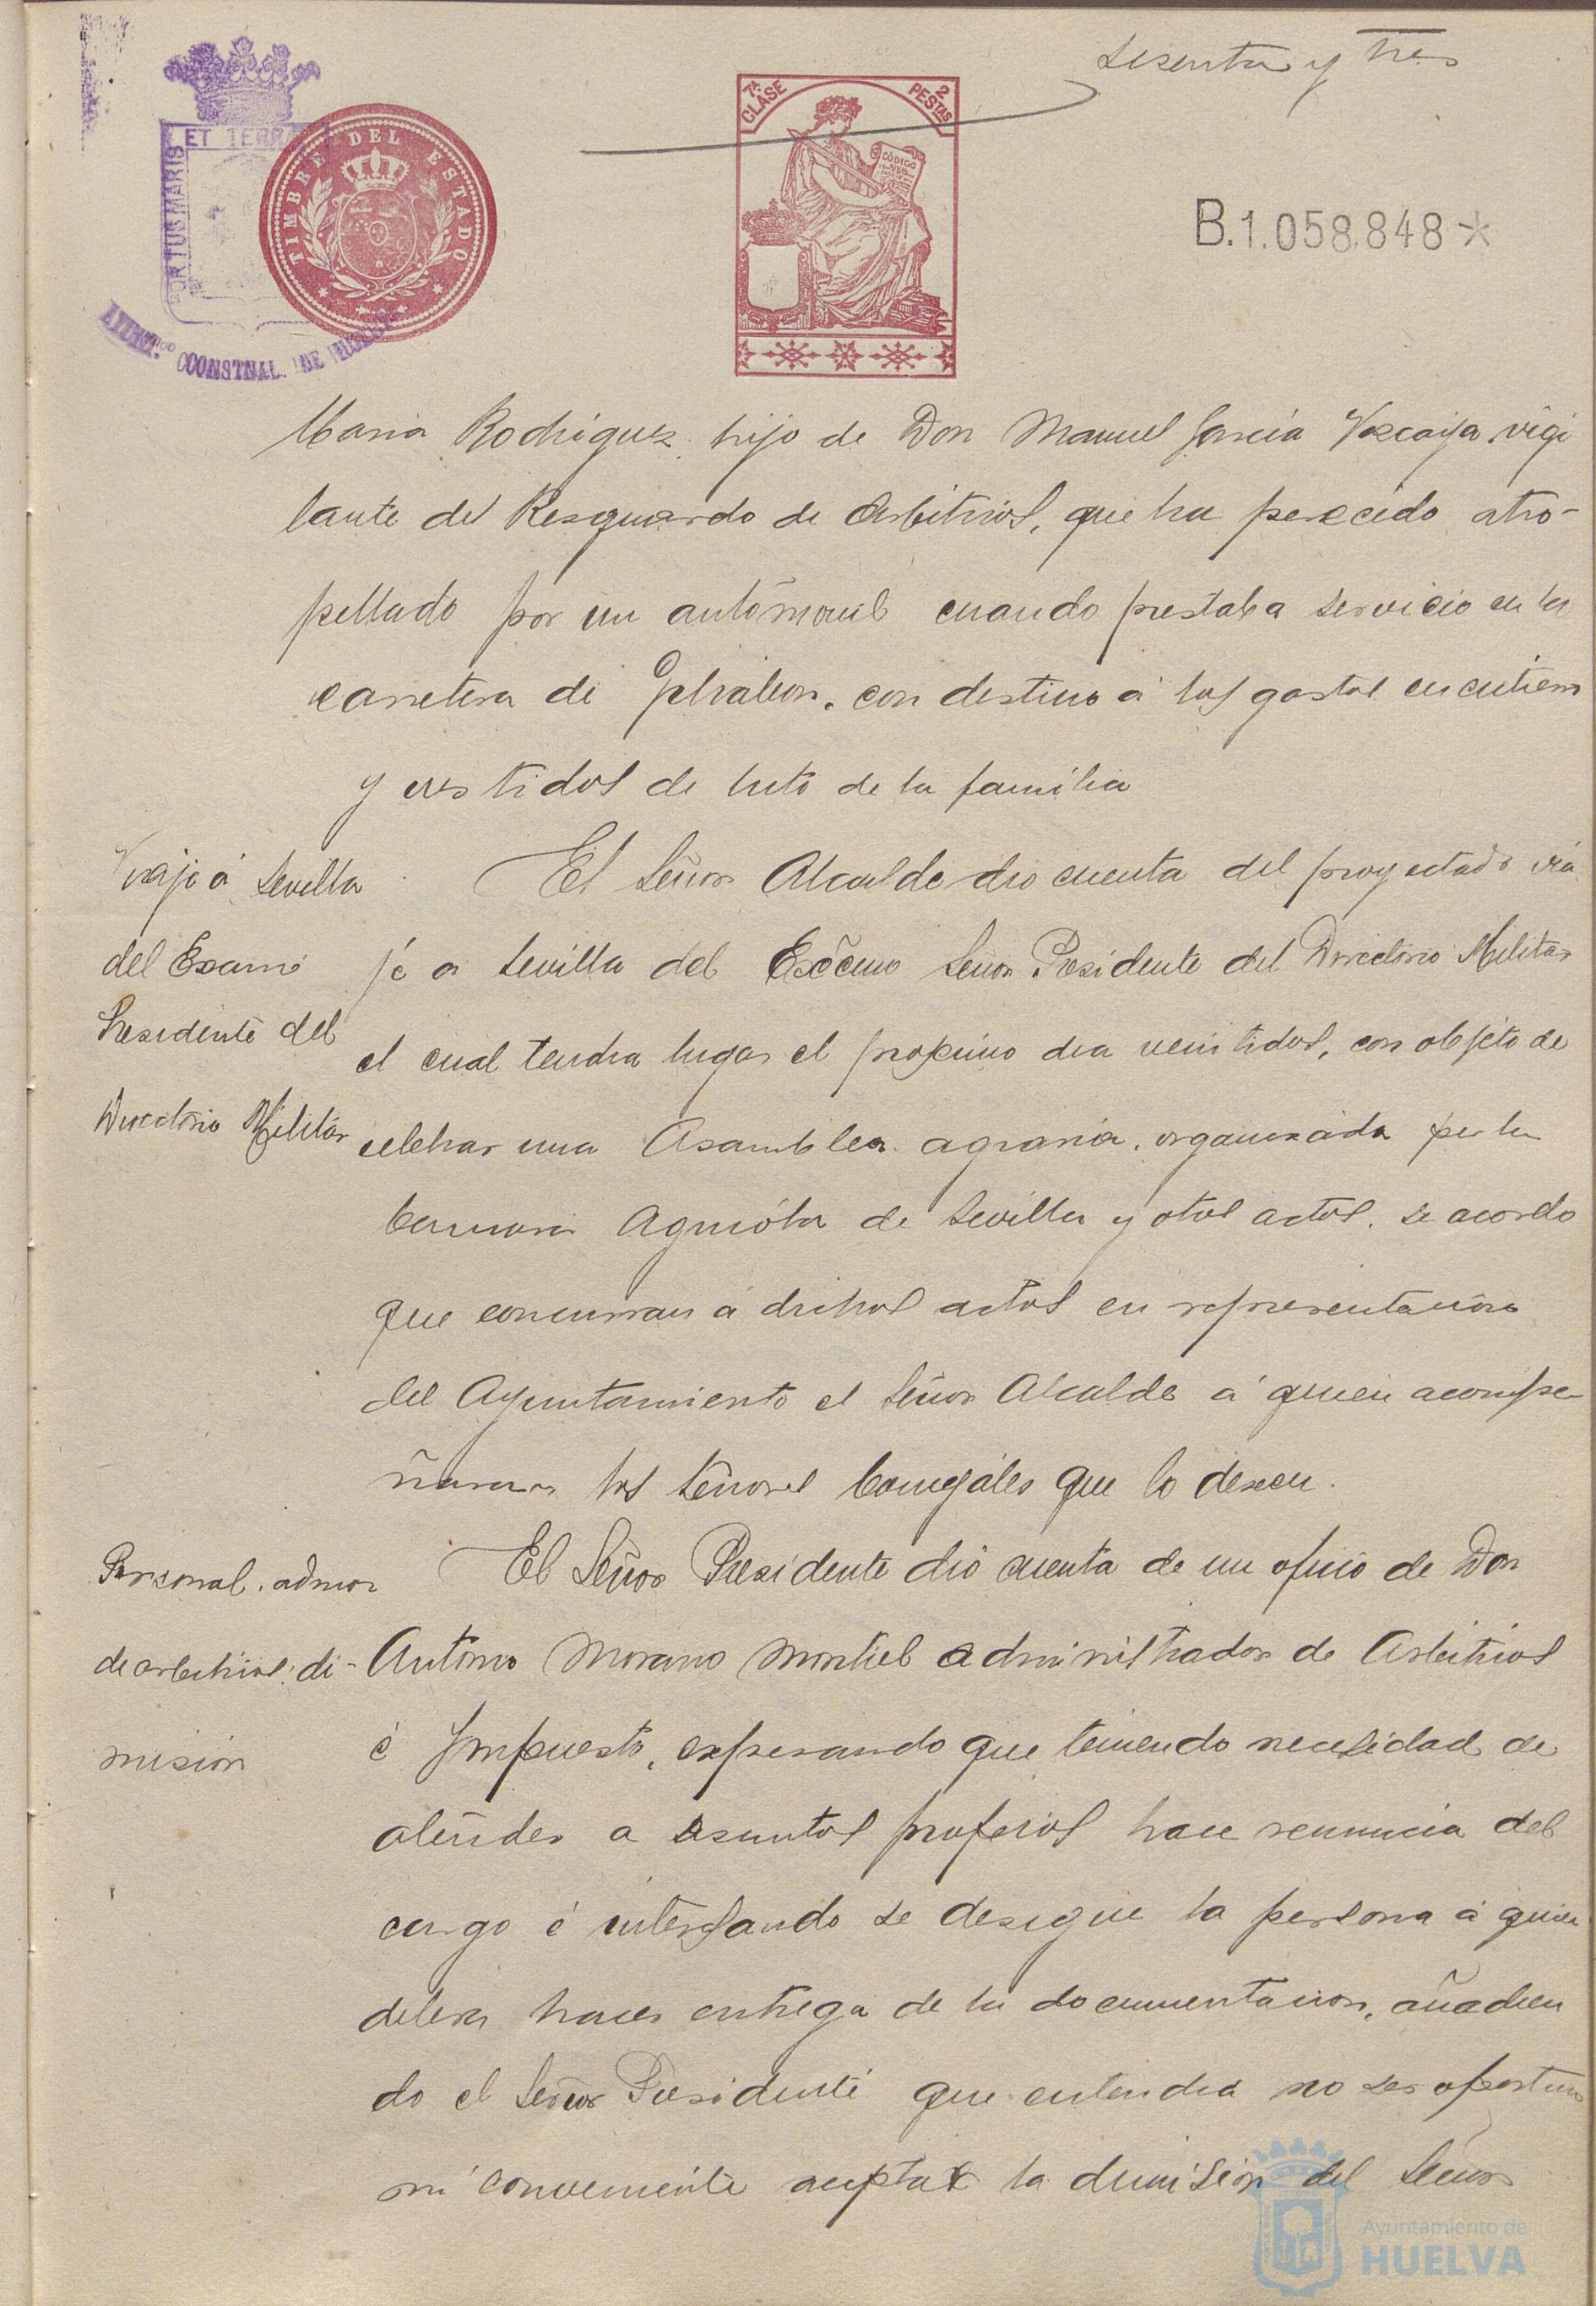 sesenta y tres
7ª CLASE
2 PESTAS
CÓDIGO
ET TERRA
PORTUS MARIS
TIMBRE DEL ESTADO
CONSTNAL. DE
B.1.058.848*
Maria Rodriguez hijo de Don Manuel Garcia Vizcaya, vigi
lante del Resguardo de Arbitrios, que ha perecido atro-
pellado por un automovil cuando prestaba servicio en la
carretera de Gibraleon, con destino á los gastos en entierro
y vestidos de luto de la familia
Viaje á Sevilla
del Excmo
Presidente del
Directorio Militar
El Señor Alcalde dio cuenta del proyectado via
je a Sevilla del Excemo Señor Presidente del Directorio Militar
el cual tendra lugar el proximo dia veintidos, con objeto de
celebrar una Asamblea agraria, organizada por la
Camara Agricola de Sevilla y otros actos. se acordo
que concurran á dichos actos en representacion
del Ayuntamiento el Señor Alcalde á quien acompa
ñaran los Señores Concejales que lo deseen.
Personal. admor
de arbitrios: di-
mision
El Señor Presidente dió cuenta de un oficio de Don
Antonio Morano Montiel administrador de Arbitrios
é Impuesto, expresando que teniendo necesidad de
atender a asuntos propios hace renuncia del
cargo é interesando se designe la persona á quien
debera hacer entrega de la documentacion, añadien
do el Señor Presidente que entendia no ser oportuno
ni conveniente aceptar la dimision del Señor
Ayuntamiento de
HUELVA